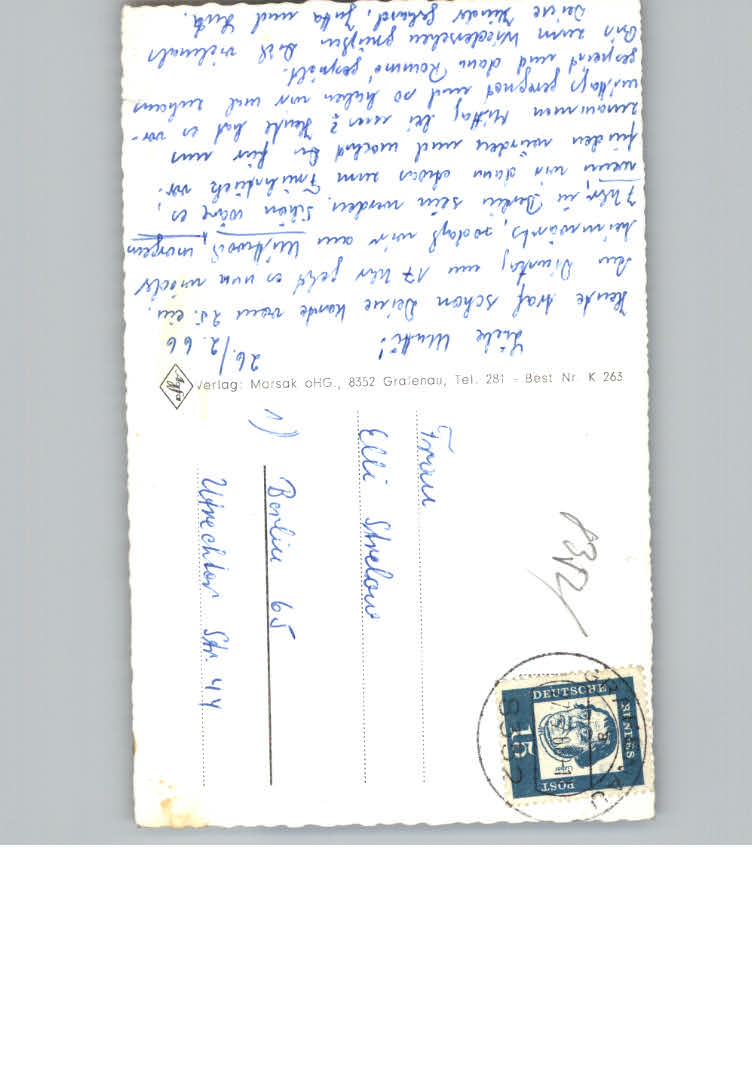 26./2. 66
Liebe Mutti!
Heute traf schon Deine Karte vom 25. ein.
Am Dienstag um 17 Uhr geht es nun wieder
heimwärts, sodaß wir am Mittwoch, morgens
7 Uhr, in Berlin sein werden. Schön wäre es,
wenn wir dann etwas zum Frühstück vor-
finden würden und machst Du für uns
zusammen Mittag bei uns? Heute hat es vor-
mittags geregnet und so haben wir mal zuhaus
gespielt und dann Rommé gespielt.
Bis zum Wiedersehen grüßen Dich vielmals
Deine Kinder Gerhard, Jutta und
Agfa
Verlag: Morsak oHG., 8352 Grafenau, Tel. 281 - Best Nr. K 263
Frau
Elli Strelow
1)
Berlin 65
Utrechter Str. 44
8352
DEUTSCHE
POST
15